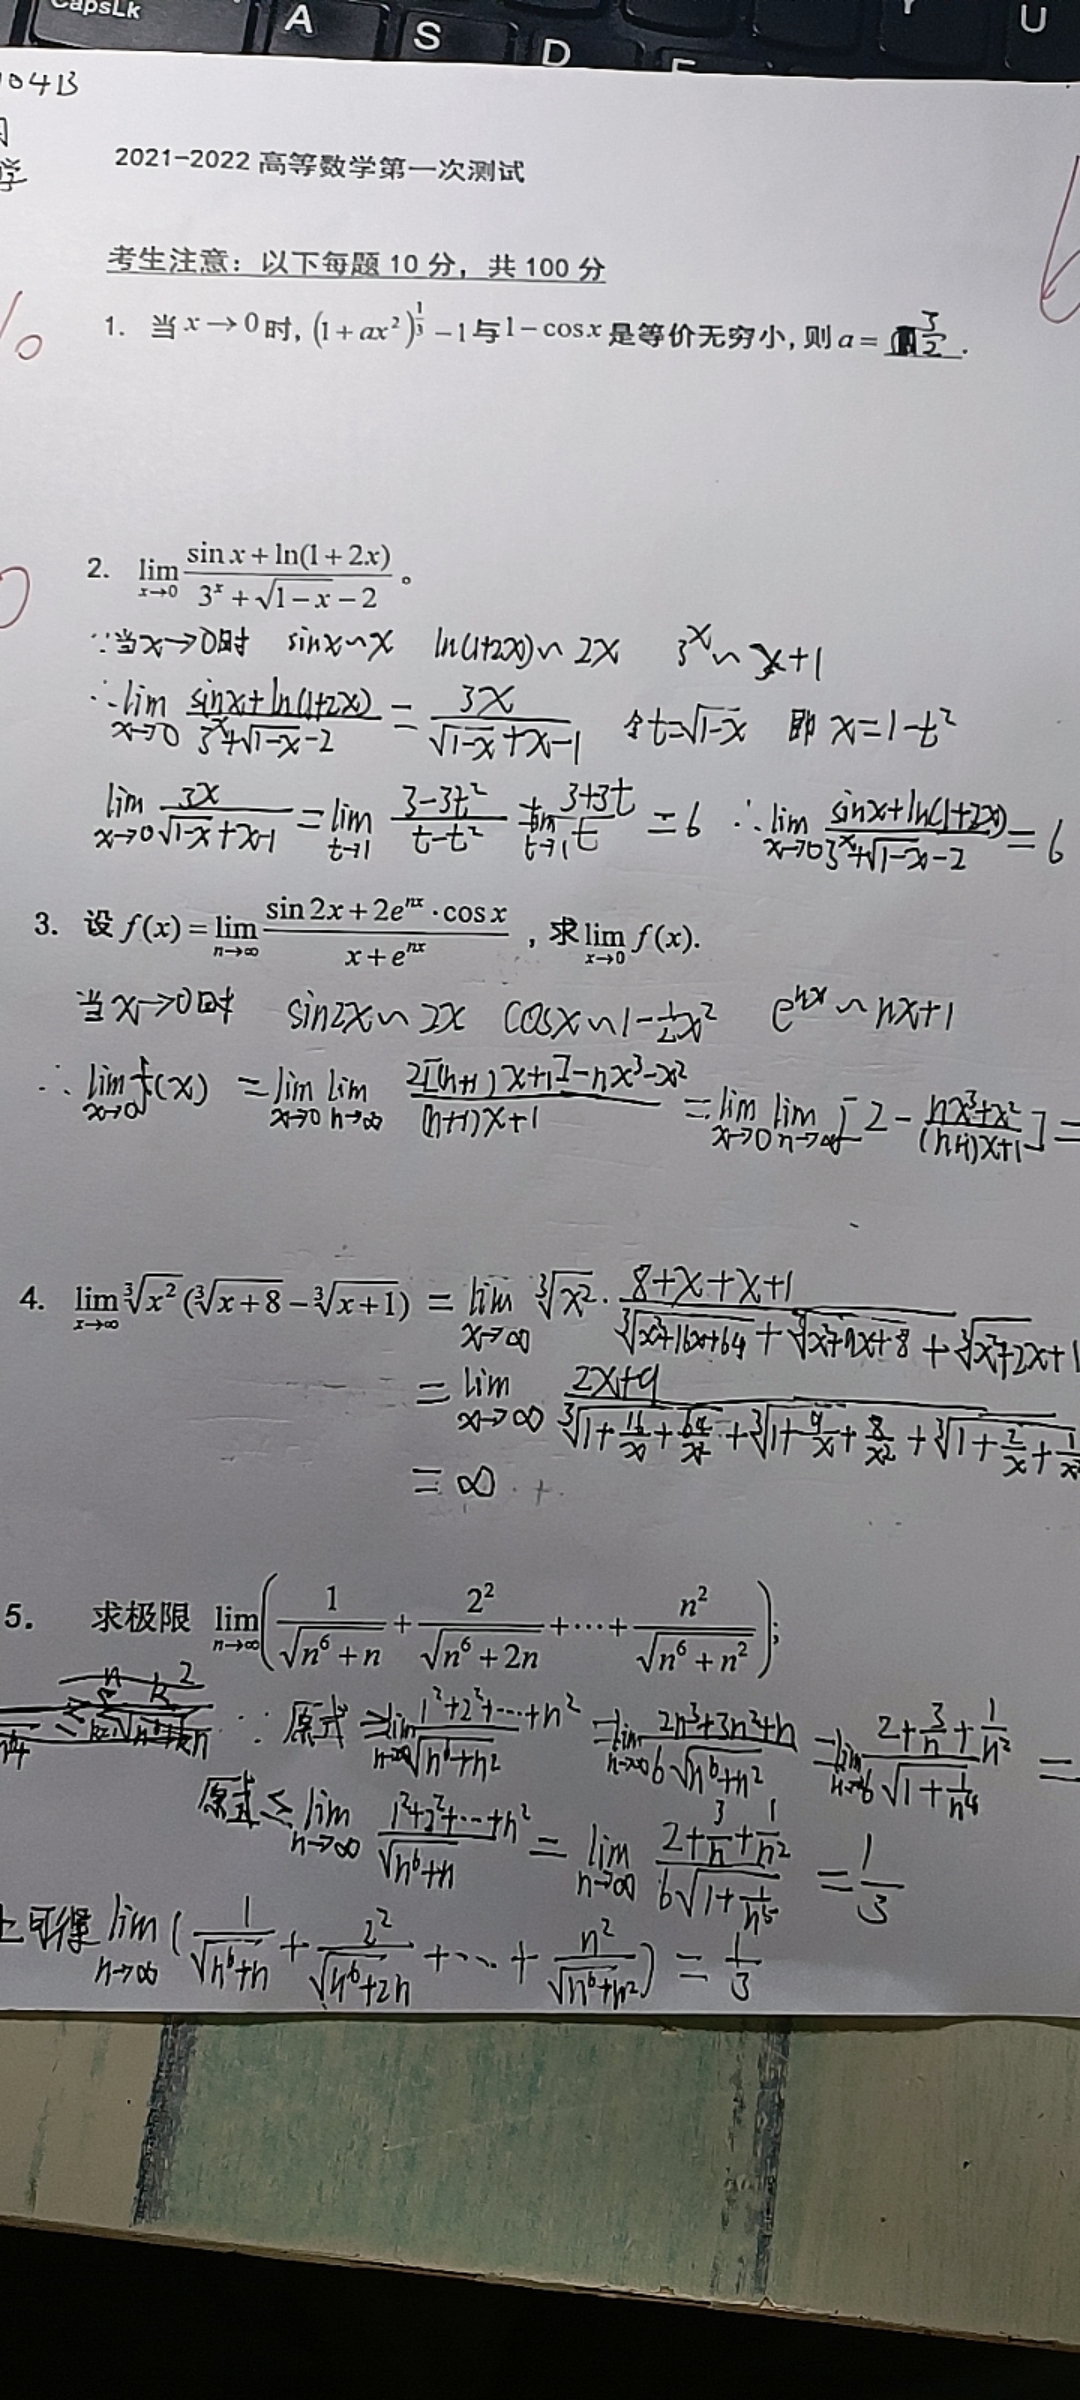 CapsLk A S D F U
1041B
2021-2022 高等数学第一次测试
考生注意：以下每题 10 分，共 100 分
1. 当 x→0 时, (1+ax²)^{1/3} −1 与 1−cos x 是等价无穷小, 则 a = 3/2 .
2. lim_{x→0} (sin x + ln(1+2x))/(3^x + √(1−x) − 2) 。
∵当x→0时 sinx∽x ln(1+2x)∽2x 3^x∽x+1
∴lim_{x→0} (sinx+ln(1+2x))/(3^x+√(1−x)−2) = 3x/(√(1−x)+x−1) 令t=√(1−x) 即 x=1−t²
lim_{x→0} 3x/(√(1−x)+x−1) = lim_{t→1} (3−3t²)/(t−t²) = lim_{t→1} (3+3t)/t = 6 ∴lim_{x→0} (sinx+ln(1+2x))/(3^x+√(1−x)−2) = 6
3. 设 f(x) = lim_{n→∞} (sin 2x + 2e^{nx}·cos x)/(x + e^{nx}) , 求 lim_{x→0} f(x).
当x→0时 sin2x∽2x cosx∽1−½x² e^{nx}∽nx+1
∴lim_{x→0} f(x) = lim_{x→0} lim_{n→∞} (2[(n+1)x+1]−nx³−x²)/((n+1)x+1) = lim_{x→0} lim_{n→∞} [2 − (nx³+x²)/((n+1)x+1)] =
4. lim_{x→∞} ∛(x²) (∛(x+8) − ∛(x+1)) = lim_{x→∞} ∛(x²)·(8+x+x+1)/(∛(x²+16x+64) + ∛(x²+9x+8) + ∛(x²+2x+1
= lim_{x→∞} (2x+9)/(∛(1+16/x+64/x²) + ∛(1+9/x+8/x²) + ∛(1+2/x+1/x²
= ∞
5. 求极限 lim_{n→∞} (1/√(n⁶+n) + 2²/√(n⁶+2n) + ⋯ + n²/√(n⁶+n²));
∵原式 ≥ lim_{n→∞} (1²+2²+⋯+n²)/√(n⁶+n²) = lim_{n→∞} (2n³+3n²+n)/(6√(n⁶+n²)) = lim_{n→∞} (2+3/n+1/n²)/(6√(1+1/n⁴)) =
原式 ≤ lim_{n→∞} (1²+2²+⋯+n²)/√(n⁶+n) = lim_{n→∞} (2+3/n+1/n²)/(6√(1+1/n⁵)) = 1/3
上可得 lim_{n→∞} (1/√(n⁶+n) + 2²/√(n⁶+2n) + ⋯ + n²/√(n⁶+n²)) = 1/3